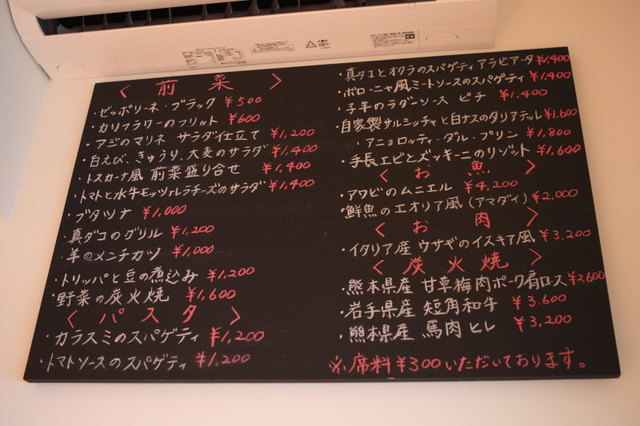 〈前菜〉
・ゼッポリーネ・ブラック ¥500
・カリフラワーのフリット ¥600
・アジのマリネ サラダ仕立て ¥1,200
・白えび、きゅうり、大麦のサラダ ¥1,400
・トスカーナ風 前菜盛り合せ ¥1,400
・トマトと水牛モッツァレラチーズのサラダ ¥1,400
・ブタツナ ¥1,000
・真ダコのグリル ¥1,200
・羊のメンチカツ ¥1,000
・トリッパと豆の煮込み ¥1,200
・野菜の炭火焼 ¥1,600
〈パスタ〉
・カラスミのスパゲティ ¥1,200
・トマトソースのスパゲティ ¥1,200
・真ダコとオクラのスパゲティ アラビアータ ¥1,400
・ボローニャ風ミートソースのスパゲティ ¥1,400
・子羊のラグーソース ピチ ¥1,400
・自家製サルシッチャと白ナスのタリアテッレ ¥1,600
・アニョロッティ・ダル・プリン ¥1,800
・手長エビとズッキーニのリゾット ¥1,600
〈お魚〉
・アワビのムニエル ¥4,200
・鮮魚のエオリア風(アマダイ) ¥2,000
〈お肉〉
・イタリア産 ウサギのイスキア風 ¥3,200
〈炭火焼〉
・熊本県産 甘草梅肉ポーク肩ロース ¥2,600
・岩手県産 短角和牛 ¥3,600
・熊本県産 馬肉ヒレ ¥3,200
※席料¥300いただいております。